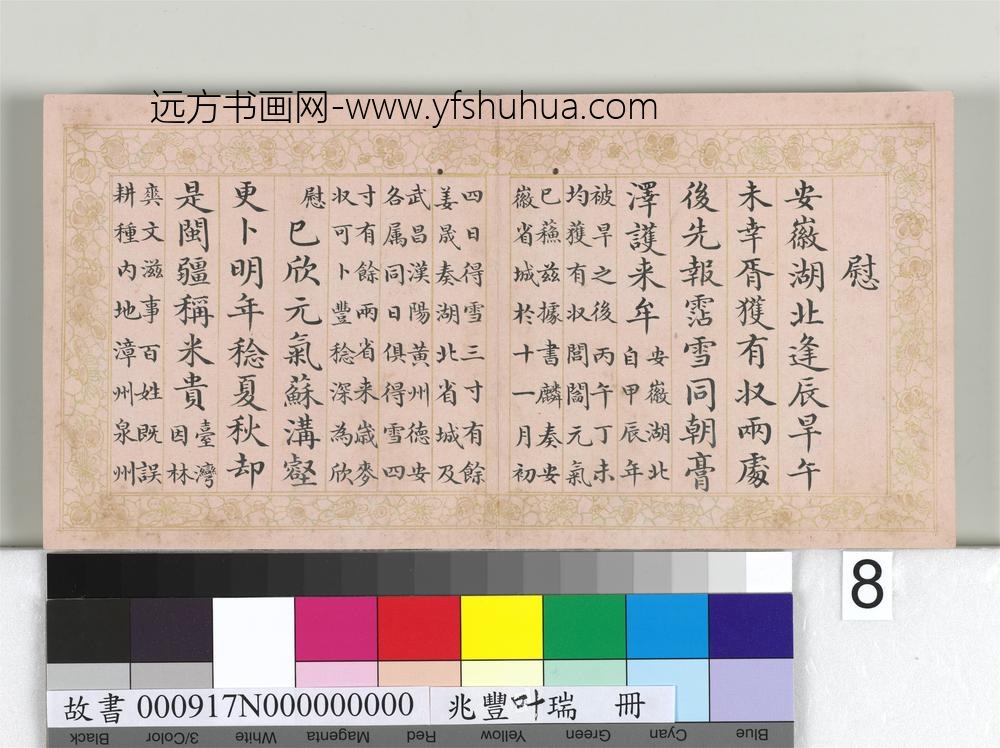 远方书画网-www.yfshuhua.com
慰
安徽湖北逢辰旱午
未幸胥獲有収兩處
後先報霑雪同朝膏
澤護来牟
安徽湖北
自甲辰年
被旱之後丙午丁未
均獲有収閭閻元氣
巳蘓兹據書麟奏安
徽省城於十一月初
四日得雪三寸有餘
姜晟奏湖北省城及
武昌漢陽黄州德安
各属同日俱得雪四
寸有餘兩省来歲麥
収可卜豐稔深為欣
慰
巳欣元氣蘇溝壑
更卜明年稔夏秋却
是閩疆稱米貴
臺灣
因林
爽文滋事百姓既誤
耕種内地漳州泉州
8
故書 000917N000000000 兆豐叶瑞 冊
Black 3/Color White Magenta Red Yellow Green Cyan Blue